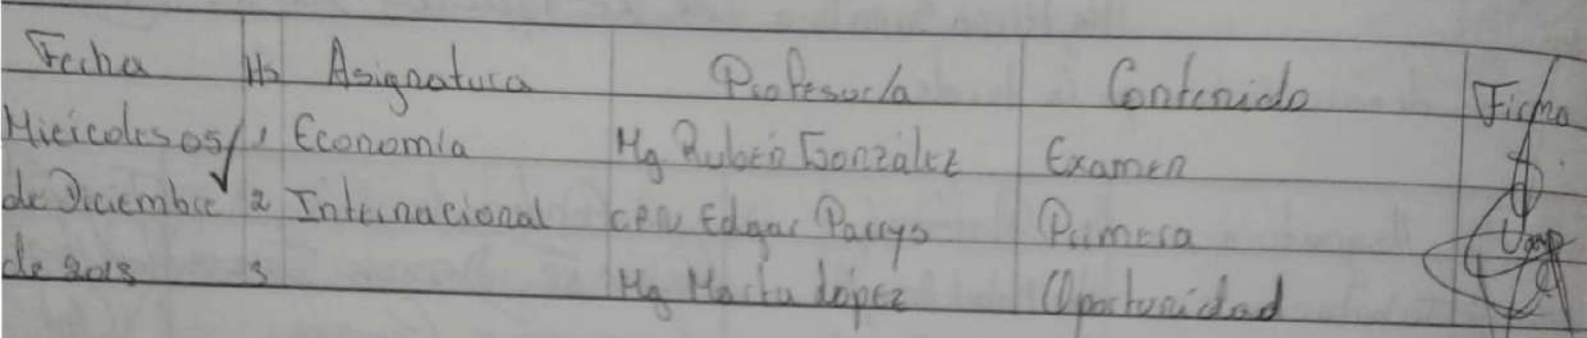 Fecha Hs Asignatura Profesor/a Contenido Firma
Miércoles 05/ 1 Economía Mg Rubén González Examen
de Diciembre 2 Internacional Edgar Primera
de 2018 3 Mg López Oportunidad